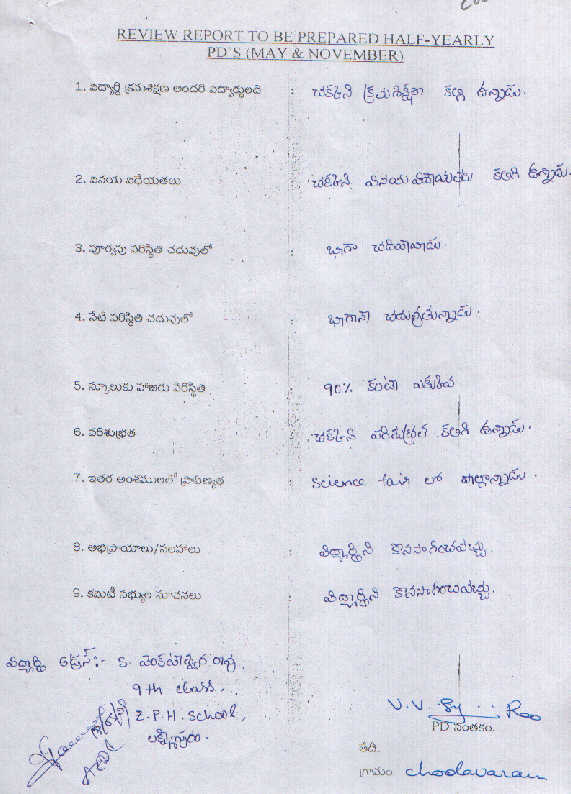 REVIEW REPORT TO BE PREPARED HALF-YEARLY
PD'S (MAY & NOVEMBER)
1. విద్యార్థి క్రమశిక్షణ అందరి విద్యార్థులతో : చక్కని క్రమశిక్షణ కల్గి ఉన్నాడు.
2. వినయ విధేయతలు : చక్కని వినయ విధేయతలు కలిగి ఉన్నాడు.
3. పూర్వపు పరిస్థితి చదువులో : బాగా చదివేవాడు.
4. నేటి పరిస్థితి చదువులో : బాగానే చదువుతున్నాడు.
5. స్కూలుకు హాజరు పరిస్థితి : 90% కంటె ఎక్కువ
6. పరిశుభ్రత : చక్కని పరిశుభ్రత కలిగి ఉన్నాడు.
7. ఇతర అంశములలో ప్రావీణ్యత : Science fair లో పాల్గొన్నాడు.
8. అభిప్రాయాలు/సలహాలు : విద్యార్థిని కొనసాగించవచ్చు.
9. కమిటీ సభ్యుల సూచనలు : విద్యార్థిని కొనసాగించవచ్చు.
విద్యార్థి అడ్రస్ :- S. వెంకటేశ్వర రావు,
9th class,
Z.P.H. School,
లక్ష్మీపురం.
V.V. Rao
PD సంతకం.
తేది.
గ్రామం Choodavaram